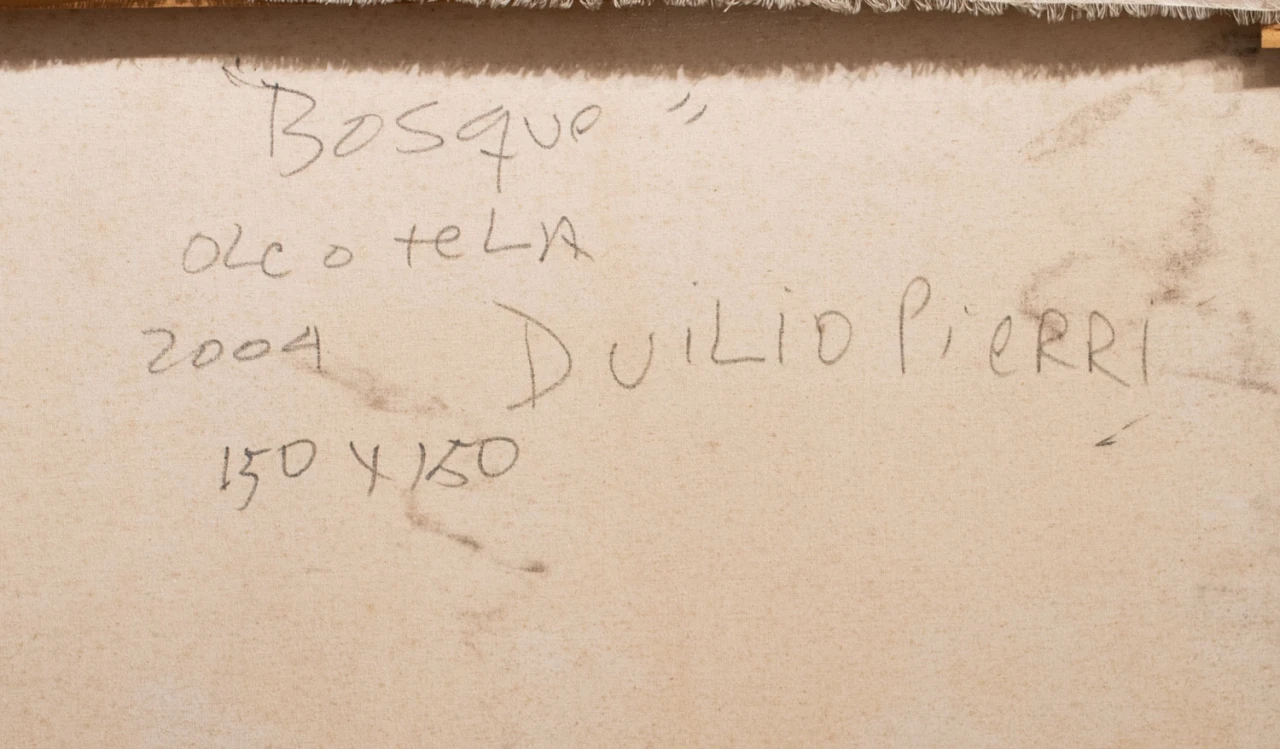 "Bosque"
OLeo teLA
2004
DUiLiO PieRRi
150 X 150